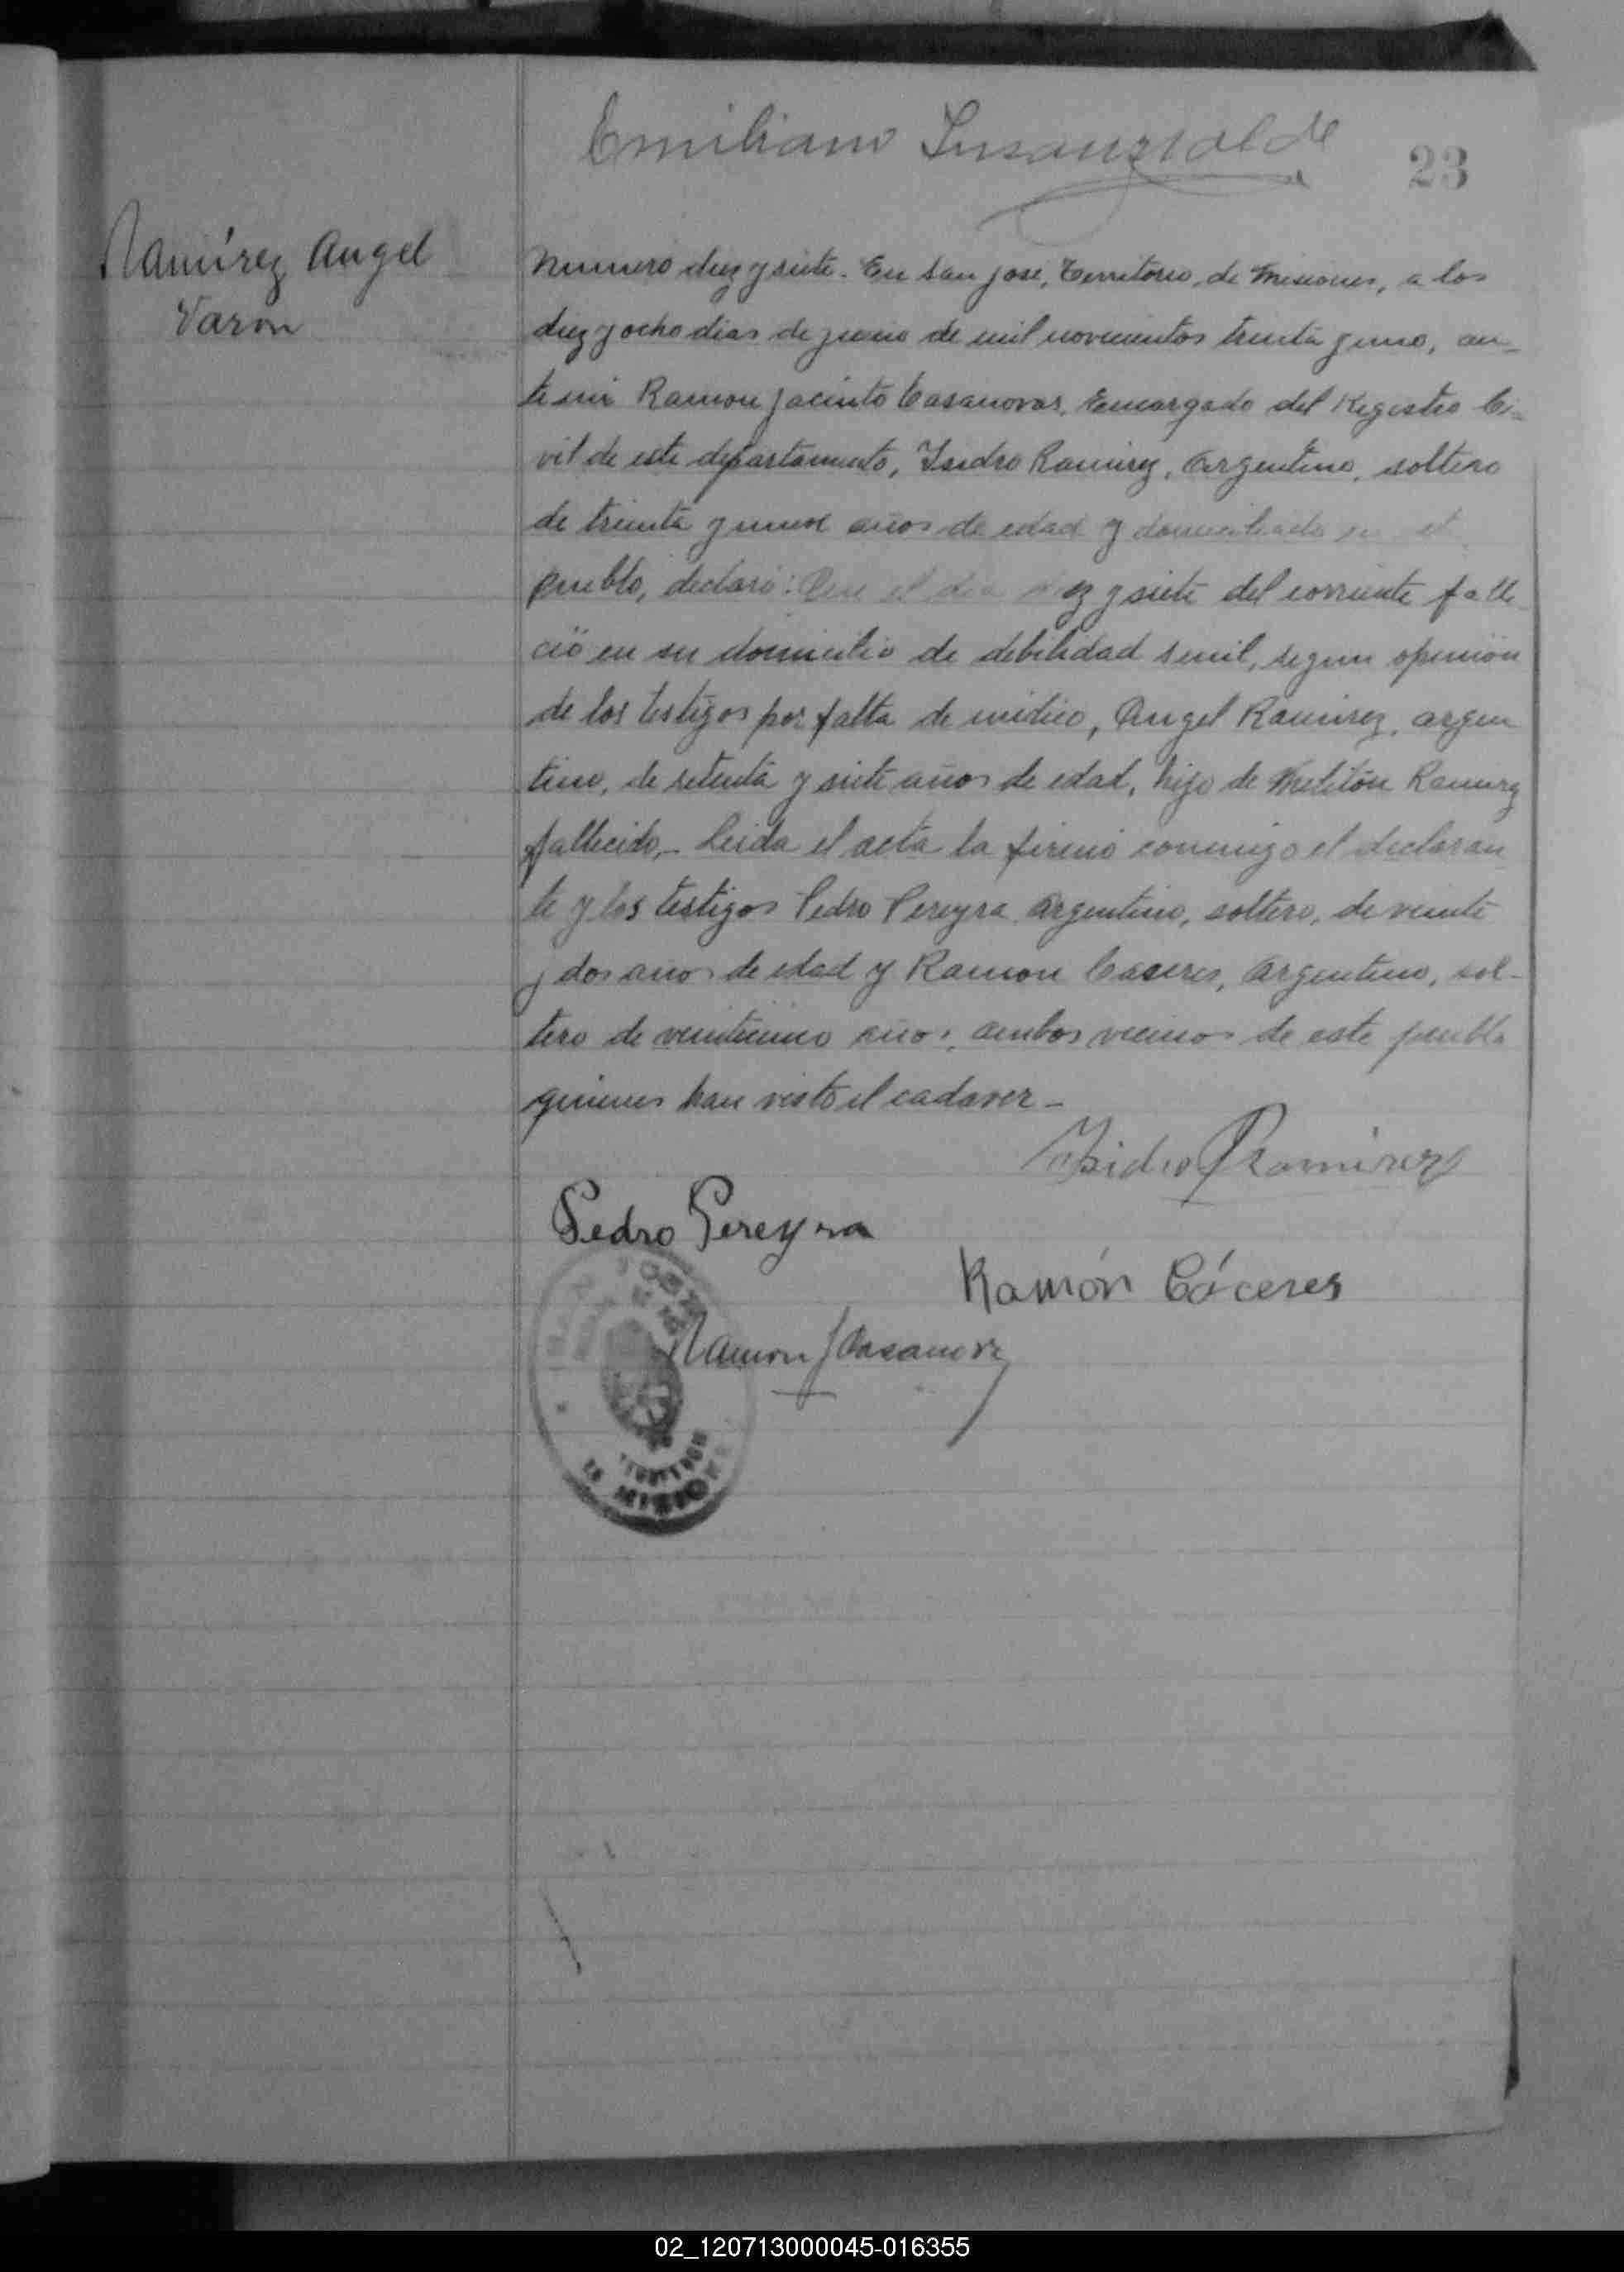 Emiliano Insaurralde
23
Ramírez Angel
Varon
Numero diez y siete. En San José, Territorio, de Misiones, a los
diez y ocho dias de junio de mil novecientos treinta y uno, an-
te mi Ramon Jacinto Casanovas, Encargado del Registro Ci-
vil de este departamento, Isidro Ramirez, Argentino, soltero
de treinta y nueve años de edad y domiciliado
pueblo, declaró: Que el dia diez y siete del corriente falle
ció en su domicilio de debilidad senil, segun opinión
de los testigos por falta de médico, Angel Ramirez, argen
tino, de setenta y siete años de edad, hijo de Melitón Ramirez
fallecido,- Leida el acta la firmó conmigo el declaran
te y los testigos Pedro Pereyra Argentino, soltero, de veinte
y dos años de edad y Ramon Caseres, Argentino, sol-
tero de veinticinco años, ambos vecinos de este pueblo
quienes han visto el cadaver-
Isidro Ramirez
Pedro Pereyra
Ramón Cáceres
Ramon J Casanova
MISIONES
02_120713000045-016355